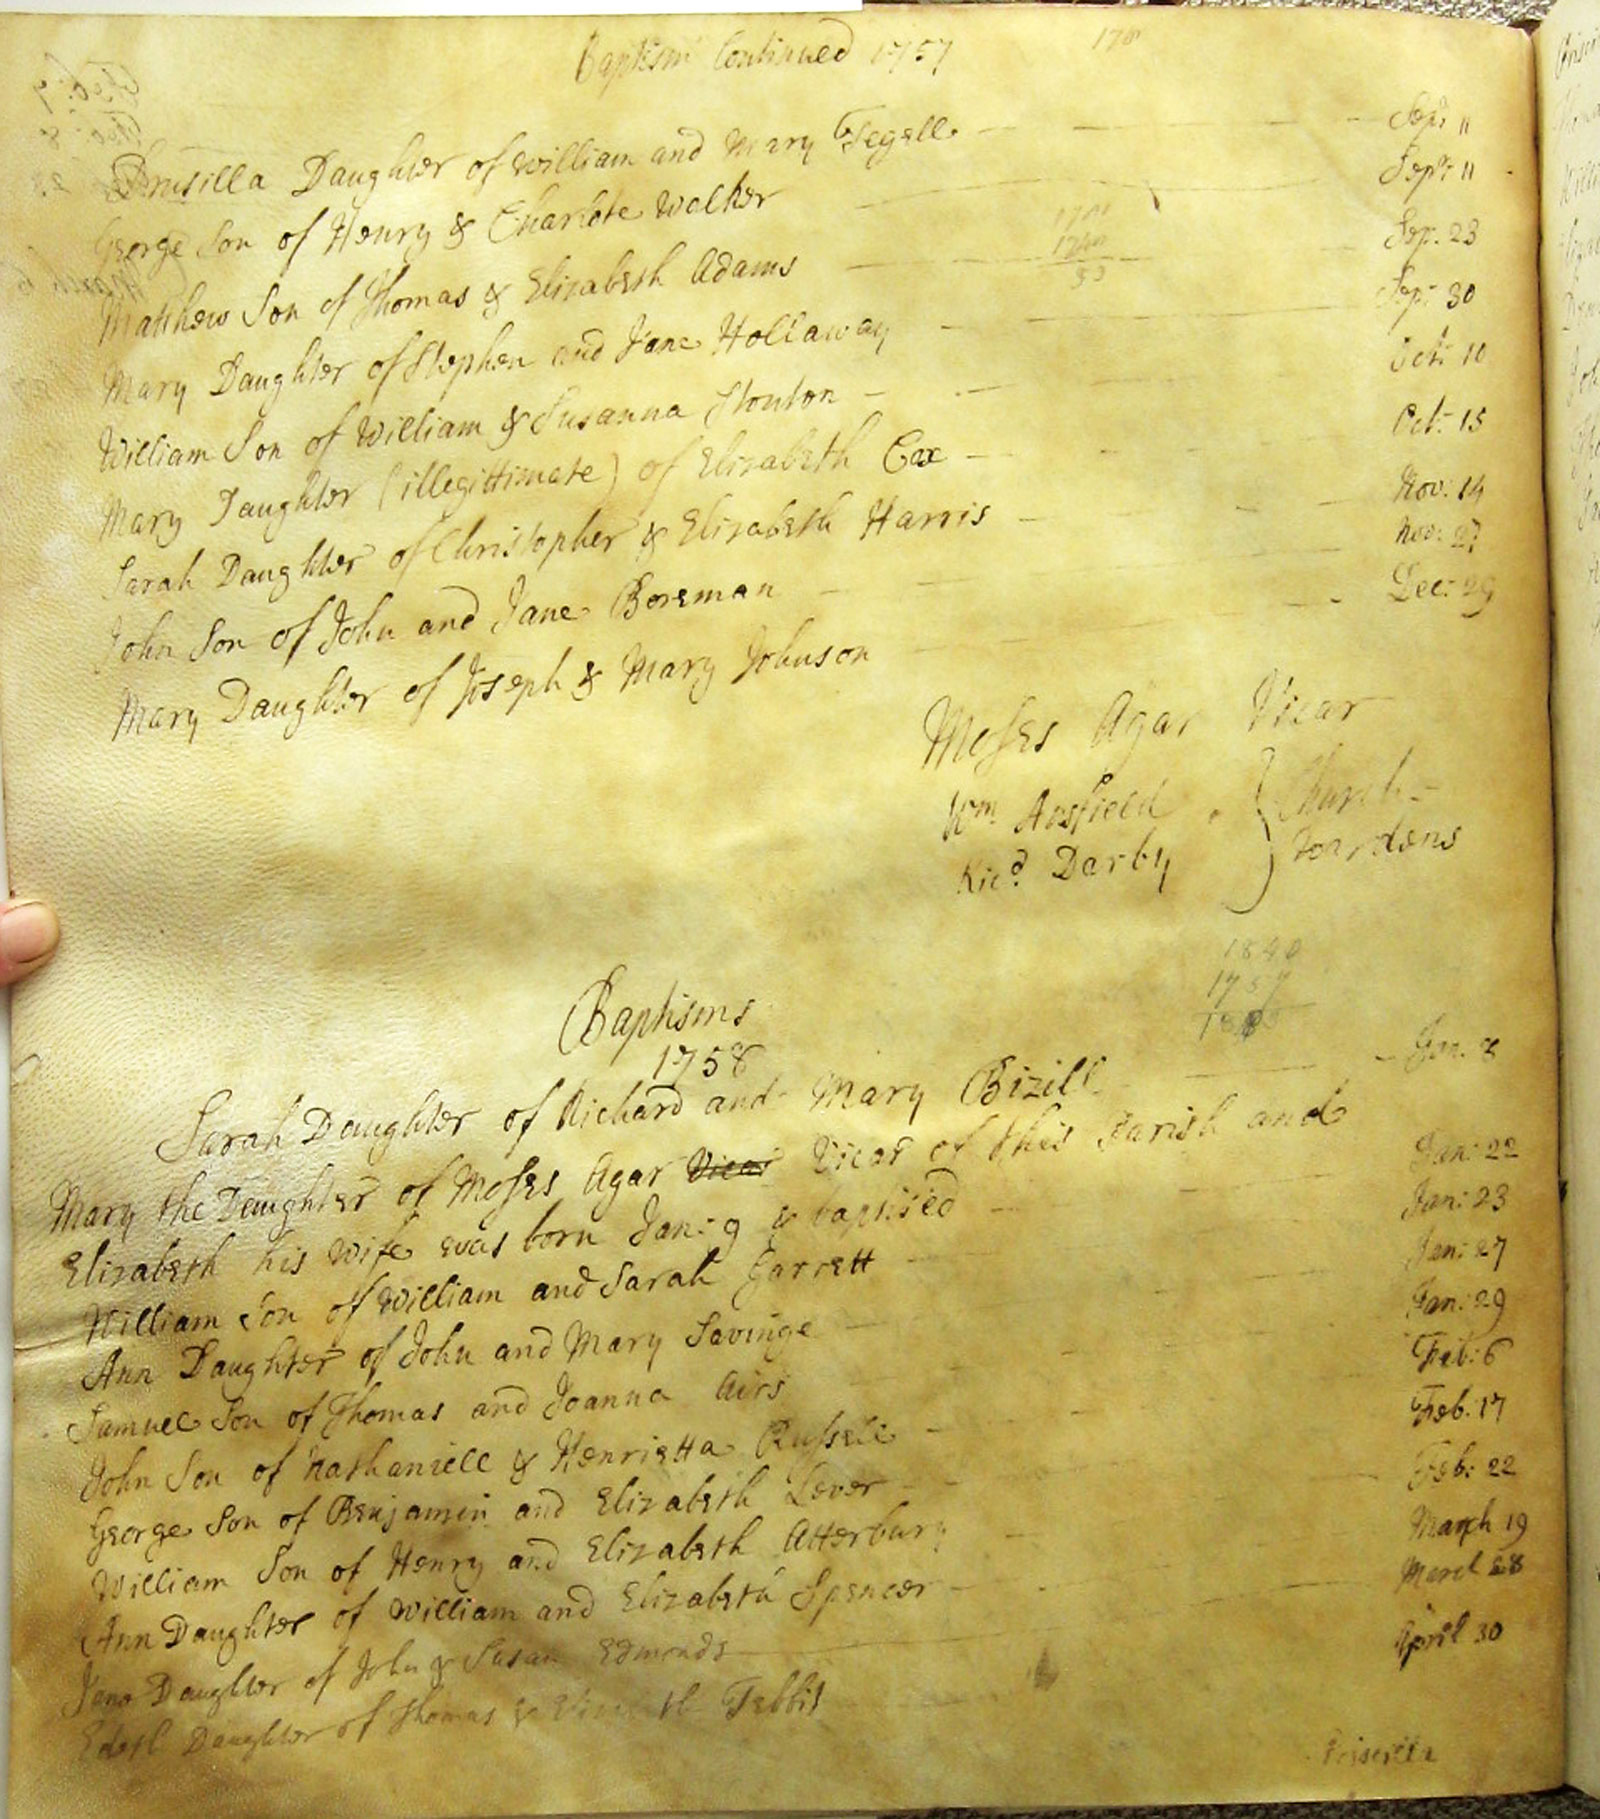 Baptism Continued 1757
Drusilla Daughter of William and Mary Tegell Sep: 11
George Son of Henry & Charlote Walker Sepr: 11
Matthew Son of Thomas & Elizabeth Adams Sep: 23
Mary Daughter of Stephen and Jane Hollaway Sep: 30
William Son of William & Susanna Stonton Oct: 10
Mary Daughter (illegittimate) of Elizabeth Cox Oct: 15
Sarah Daughter of Christopher & Elizabeth Harris Nov: 14
John Son of John and Jane Boreman Nov: 27
Mary Daughter of Joseph & Mary Johnson Dec: 29
Moses Agar Vicar
Wm Church
Ricd. Darby Wardens
1840
1757
Baptisms
1758
Sarah Daughter of Richard and Mary Bizill Jan. 8
Mary the Daughter of Moses Agar Vicar Vicar of this Parish and
Elizabeth his Wife was born Jan: 9 & baptised Jan: 22
William Son of William and Sarah Garrett Jan: 23
Ann Daughter of John and Mary Savinge Jan: 27
Samuel Son of Thomas and Joanna Airs Jan: 29
John Son of Nathaniell & Henrietta Russell Feb: 6
George Son of Benjamin and Elizabeth Lever Feb: 17
William Son of Henry and Elizabeth Atterbury Feb: 22
Ann Daughter of William and Elizabeth Spencer March 19
Jane Daughter of John & Susan Edmonds March 28
Daughter of Thomas & Tebbit April 30
Priscilla